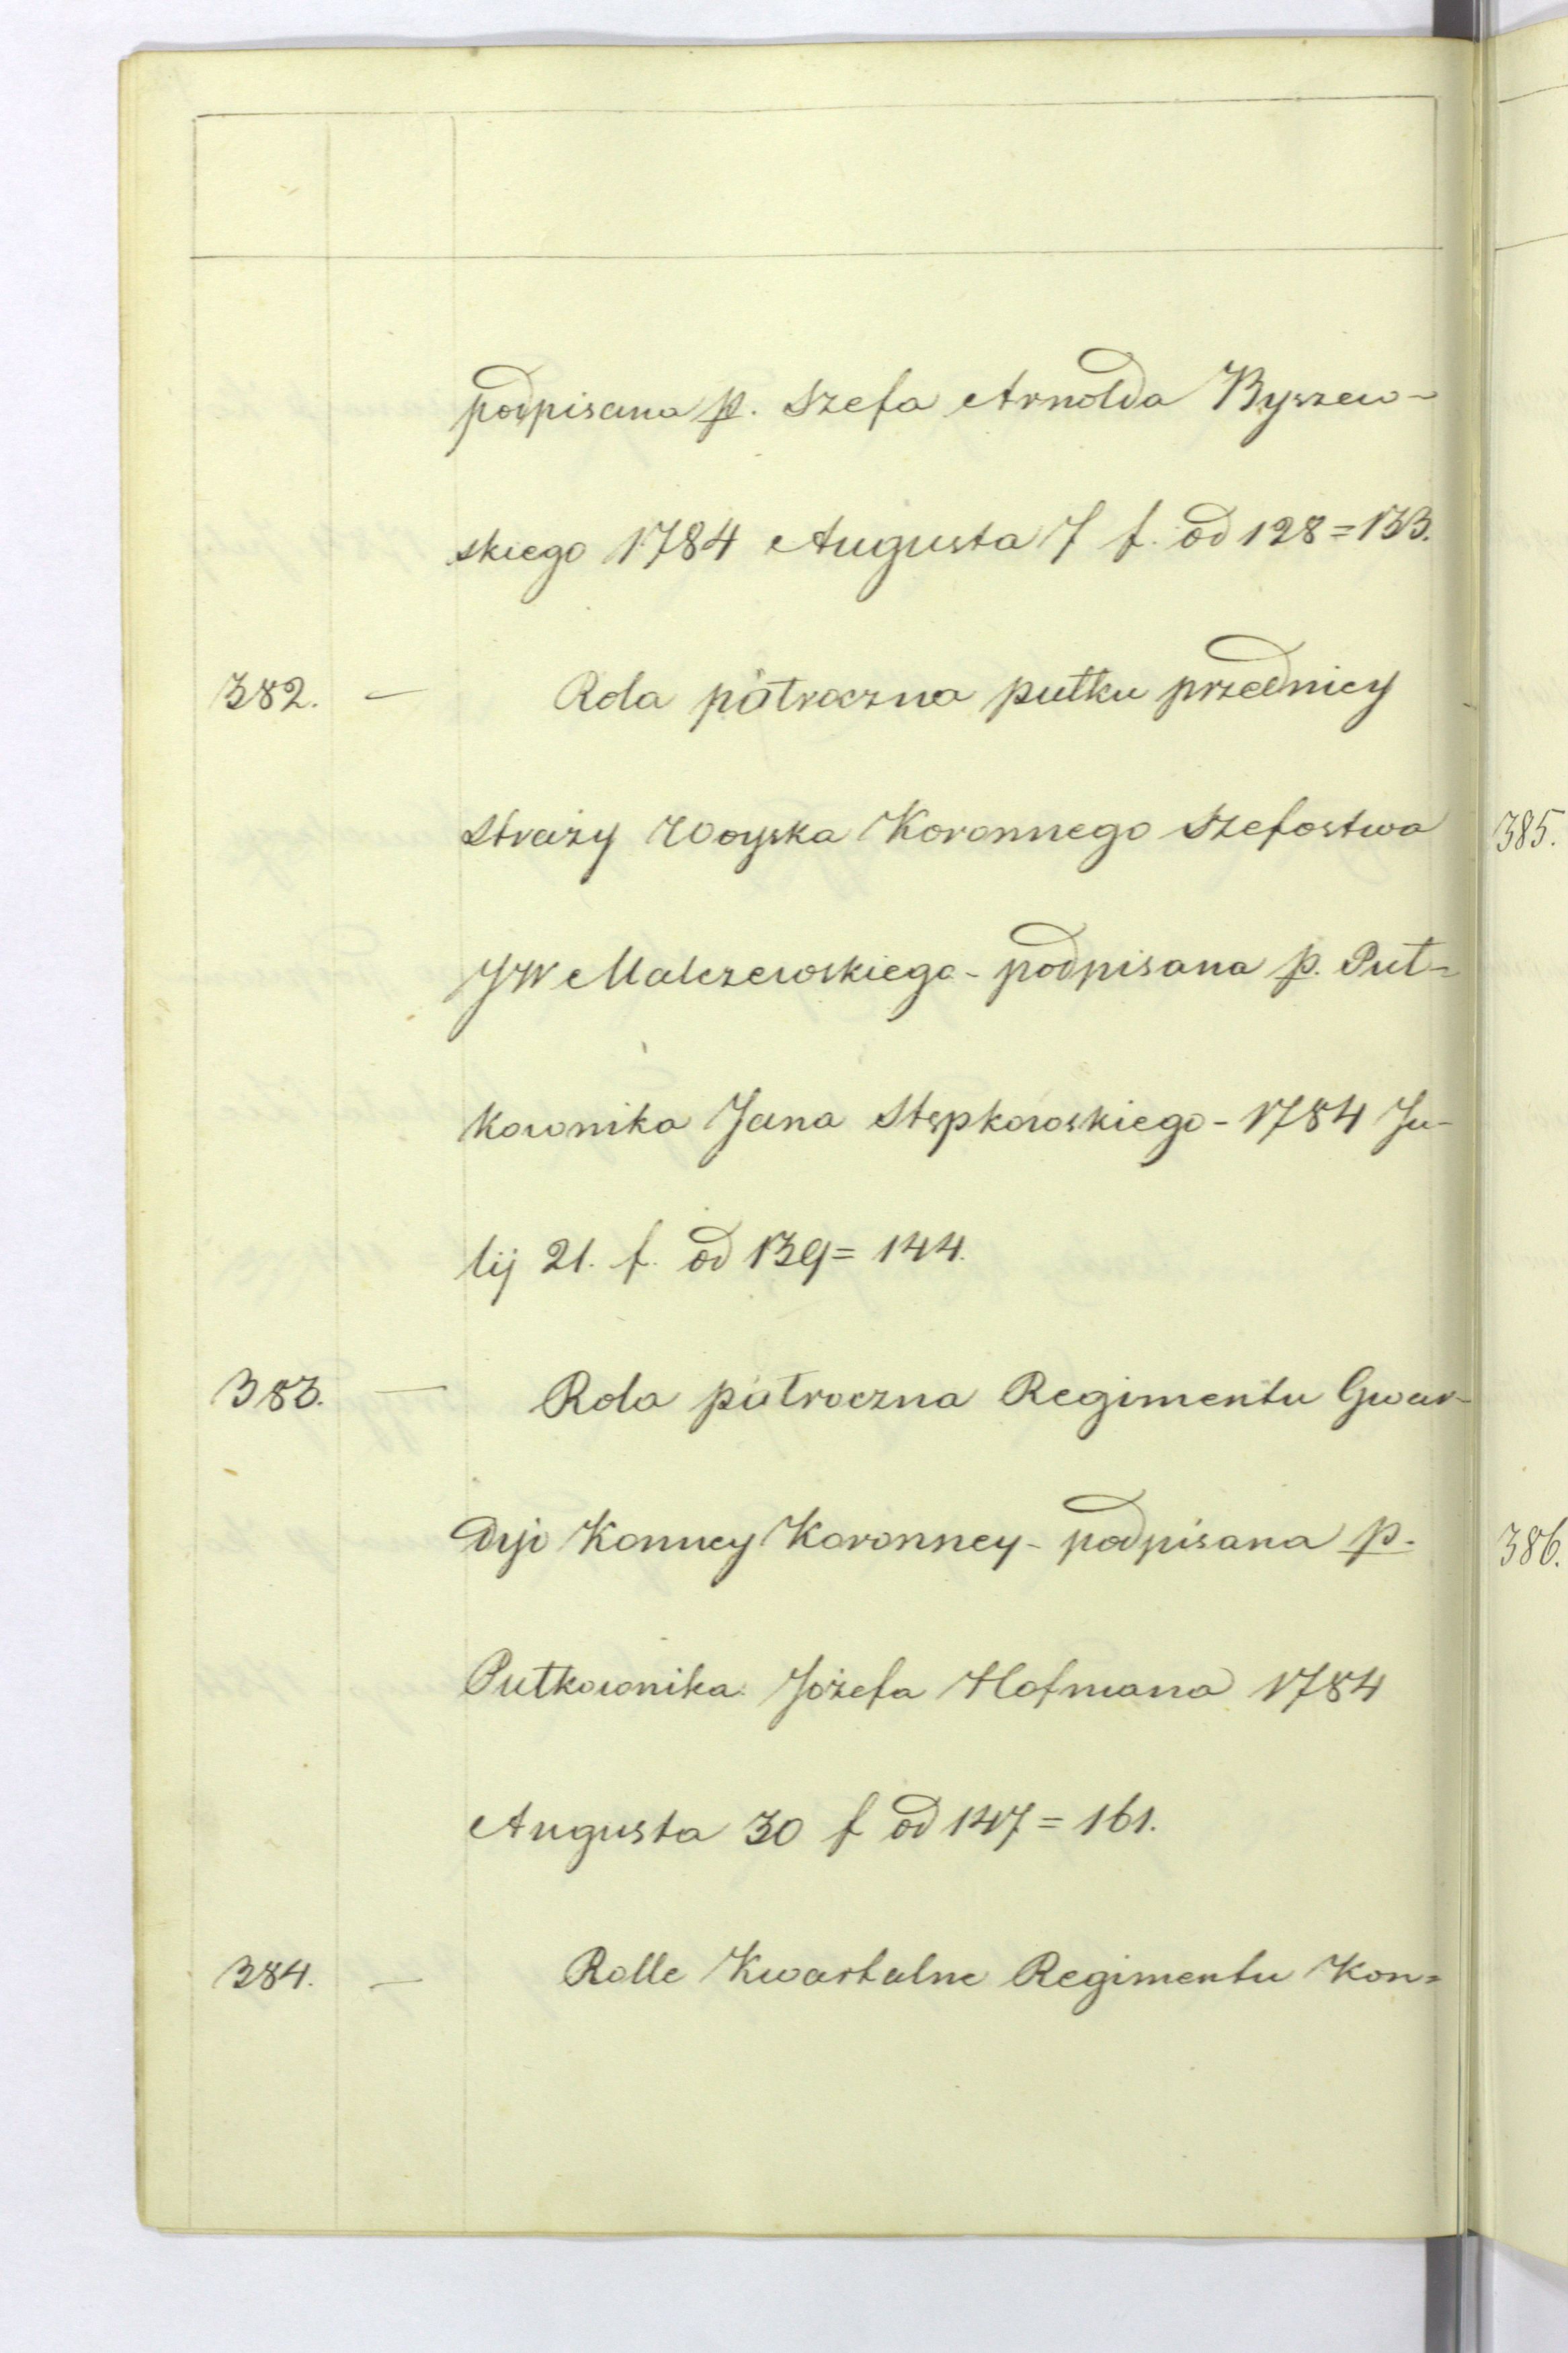 podpisana p. Szefa Arnolda Byszew-
skiego 1784 Augusta 7 f. od 128=133.
382. — Rola półroczna pułku przedniey
Straży Woyska Koronnego Szefostwa
JW Malczewskiego - podpisana p. Puł-
kownika Jana Stępkowskiego - 1784 Ju-
lij 21. f. od 139=144.
383. — Rola półroczna Regimentu Gwar-
dyi Konney Koronney - podpisana p.
Pułkownika Józefa Hofmana 1784
Augusta 30 f od 147=161.
384. — Rolle Kwartalne Regimentu Kon=
385.
386.